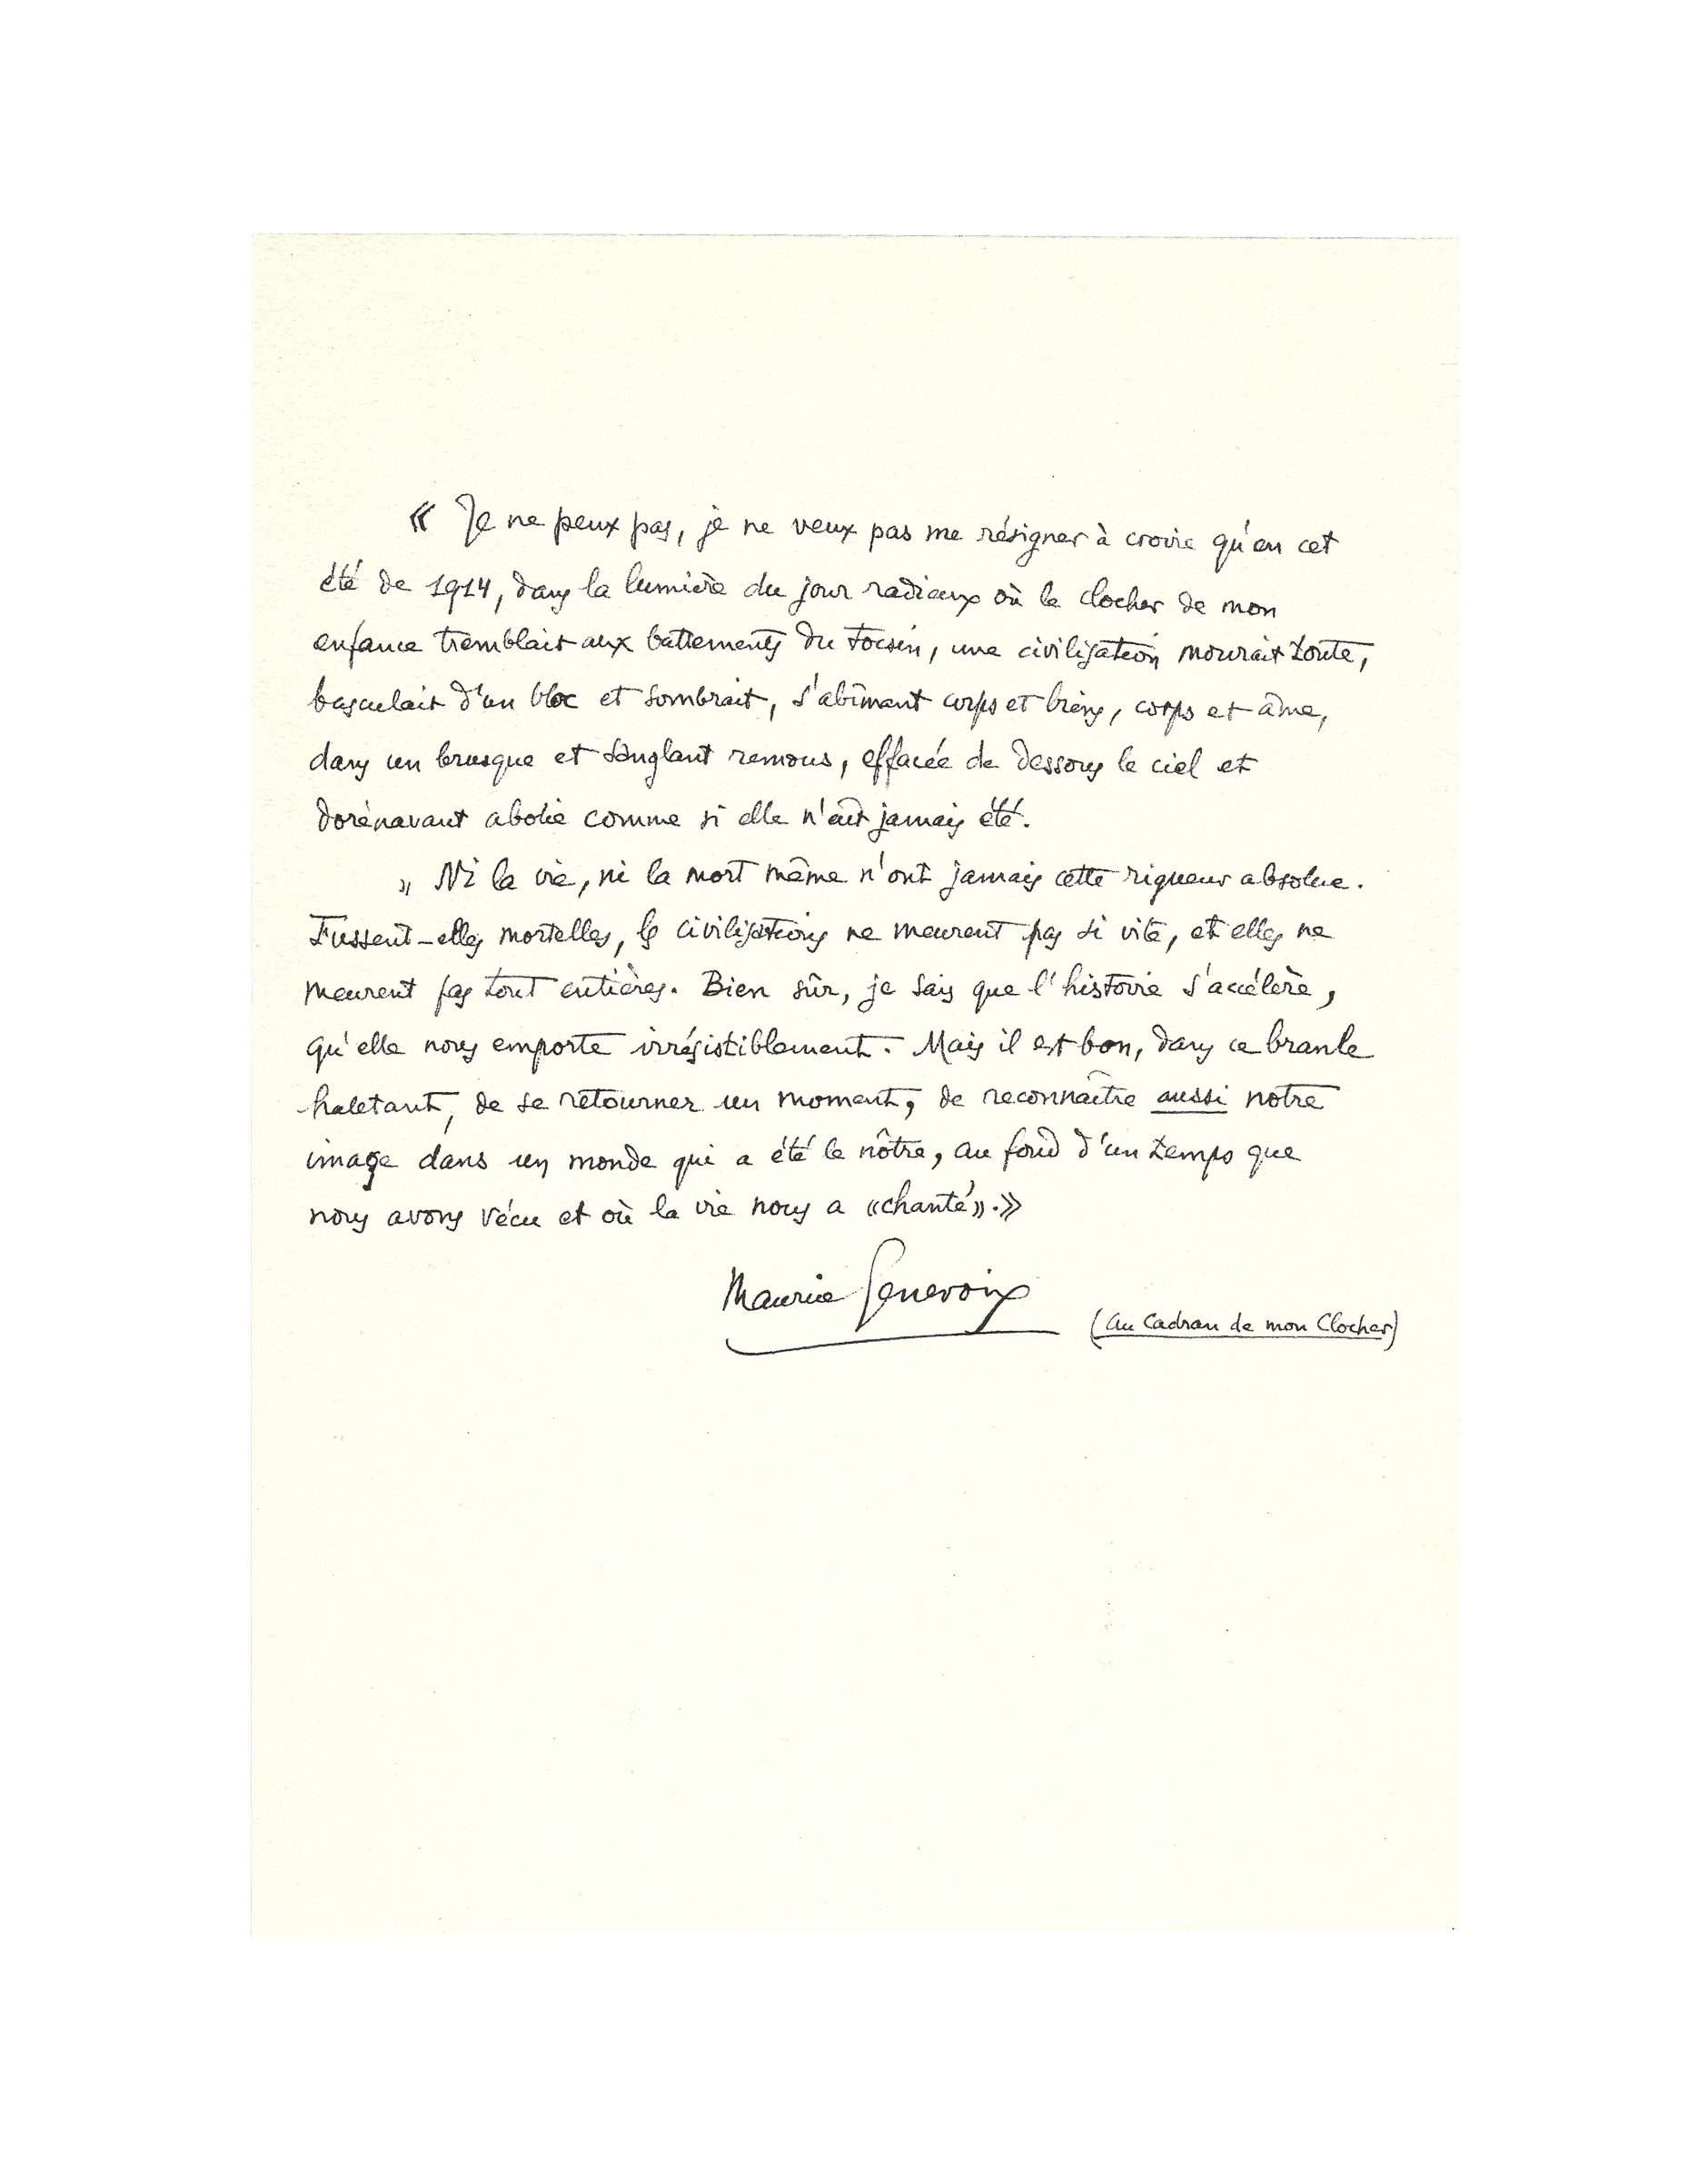 « Je ne peux pas, je ne veux pas me résigner à croire qu'en cet
été de 1914, dans la lumière du jour radieux où le clocher de mon
enfance tremblait aux battements du tocsin, une civilisation mourait toute,
basculait d'un bloc et sombrait, s'abîmant corps et biens, corps et âme,
dans un brusque et sanglant remous, effacée de dessous le ciel et
dorénavant abolie comme si elle n'eût jamais été.
» Ni la vie, ni la mort même n'ont jamais cette rigueur absolue.
Fussent-elles mortelles, les civilisations ne meurent pas si vite, et elles ne
meurent pas tout entières. Bien sûr, je sais que l'histoire s'accélère,
qu'elle nous emporte irrésistiblement. Mais il est bon, dans ce branle
haletant, de se retourner un moment, de reconnaître aussi notre
image dans un monde qui a été le nôtre, au fond d'un temps que
nous avons vécu et où la vie nous a «chanté».»
Maurice Genevoix
(Au Cadran de mon Clocher)